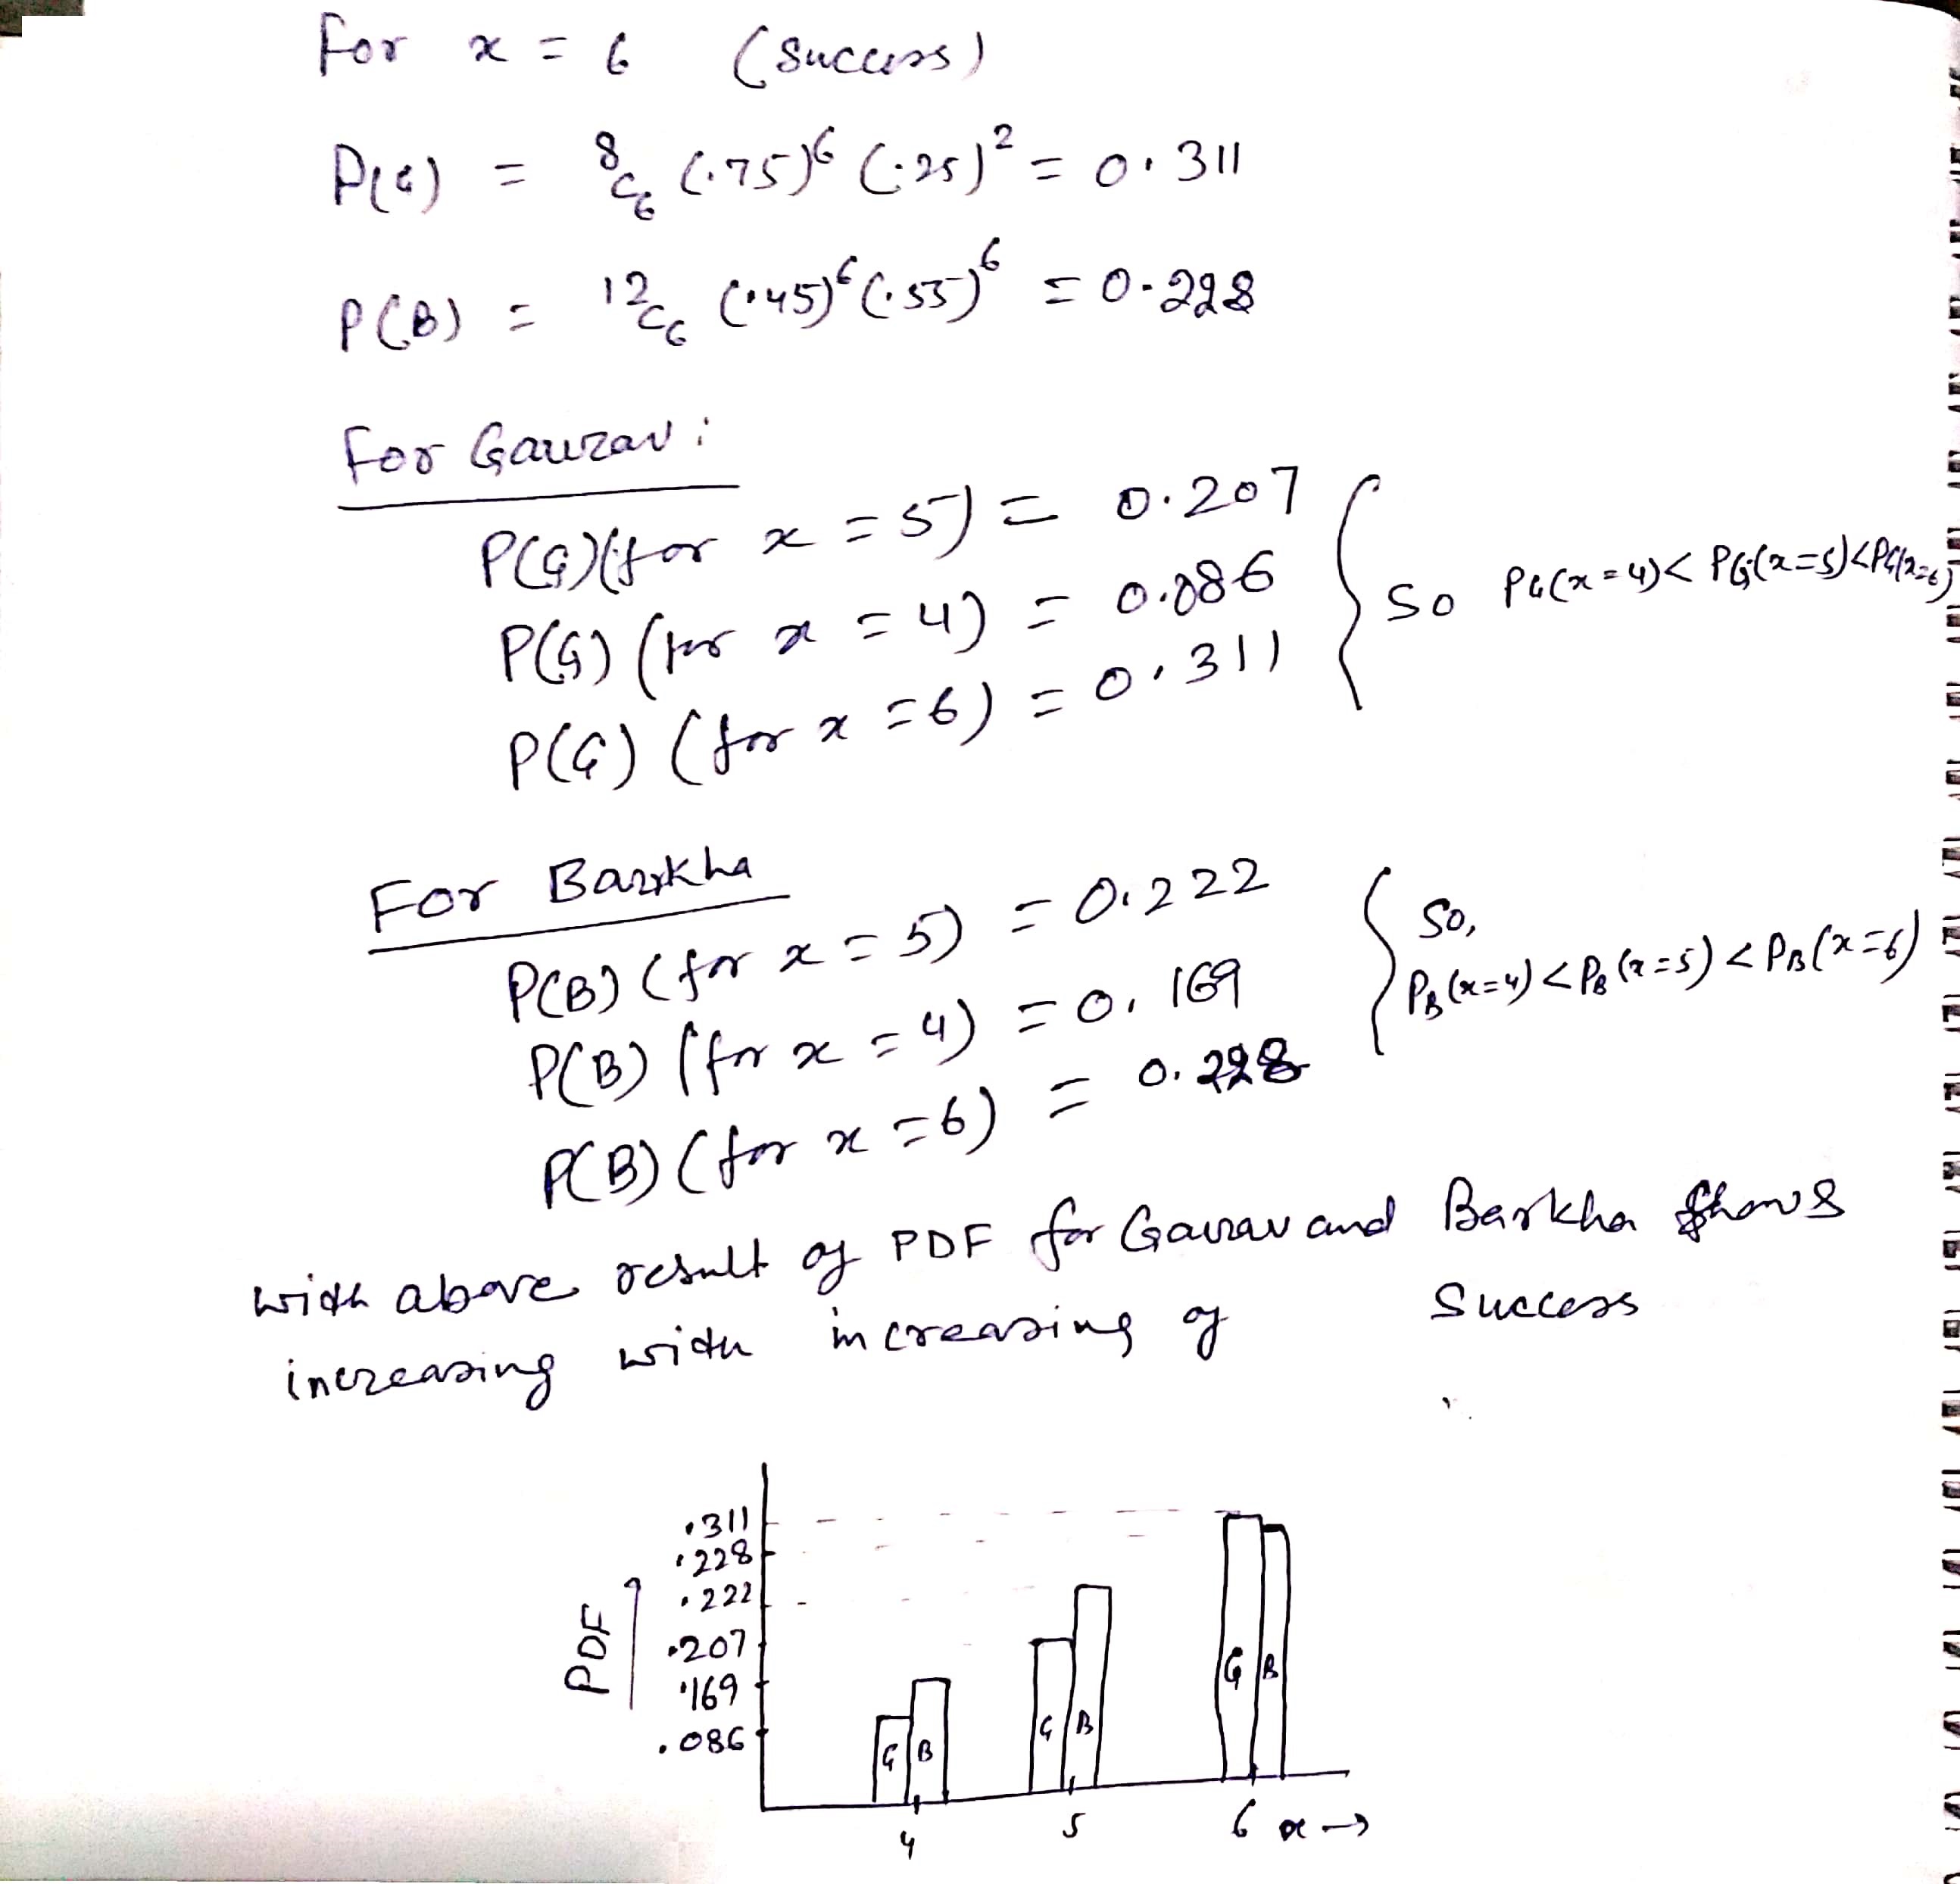 For x = 6 (Success)
P(G) = ⁸C₆ (.75)⁶ (.25)² = 0.311
P(B) = ¹²C₆ (.45)⁶ (.55)⁶ = 0.228
For Gaurav :
P(G) (for x = 5) = 0.207
P(G) (for x = 4) = 0.086
P(G) (for x = 6) = 0.311
So PG(x = 4) < PG(x = 5) < PG(x = 6)
For Barkha
P(B) (for x = 5) = 0.222
P(B) (for x = 4) = 0.169
P(B) (for x = 6) = 0.228
So,
PB(x = 4) < PB(x = 5) < PB(x = 6)
with above result of PDF for Gaurav and Barkha shows
increasing with increasing of Success
.311
.228
.222
.207
.169
.086
PDF
G B
G B
G B
4 5 6 x →